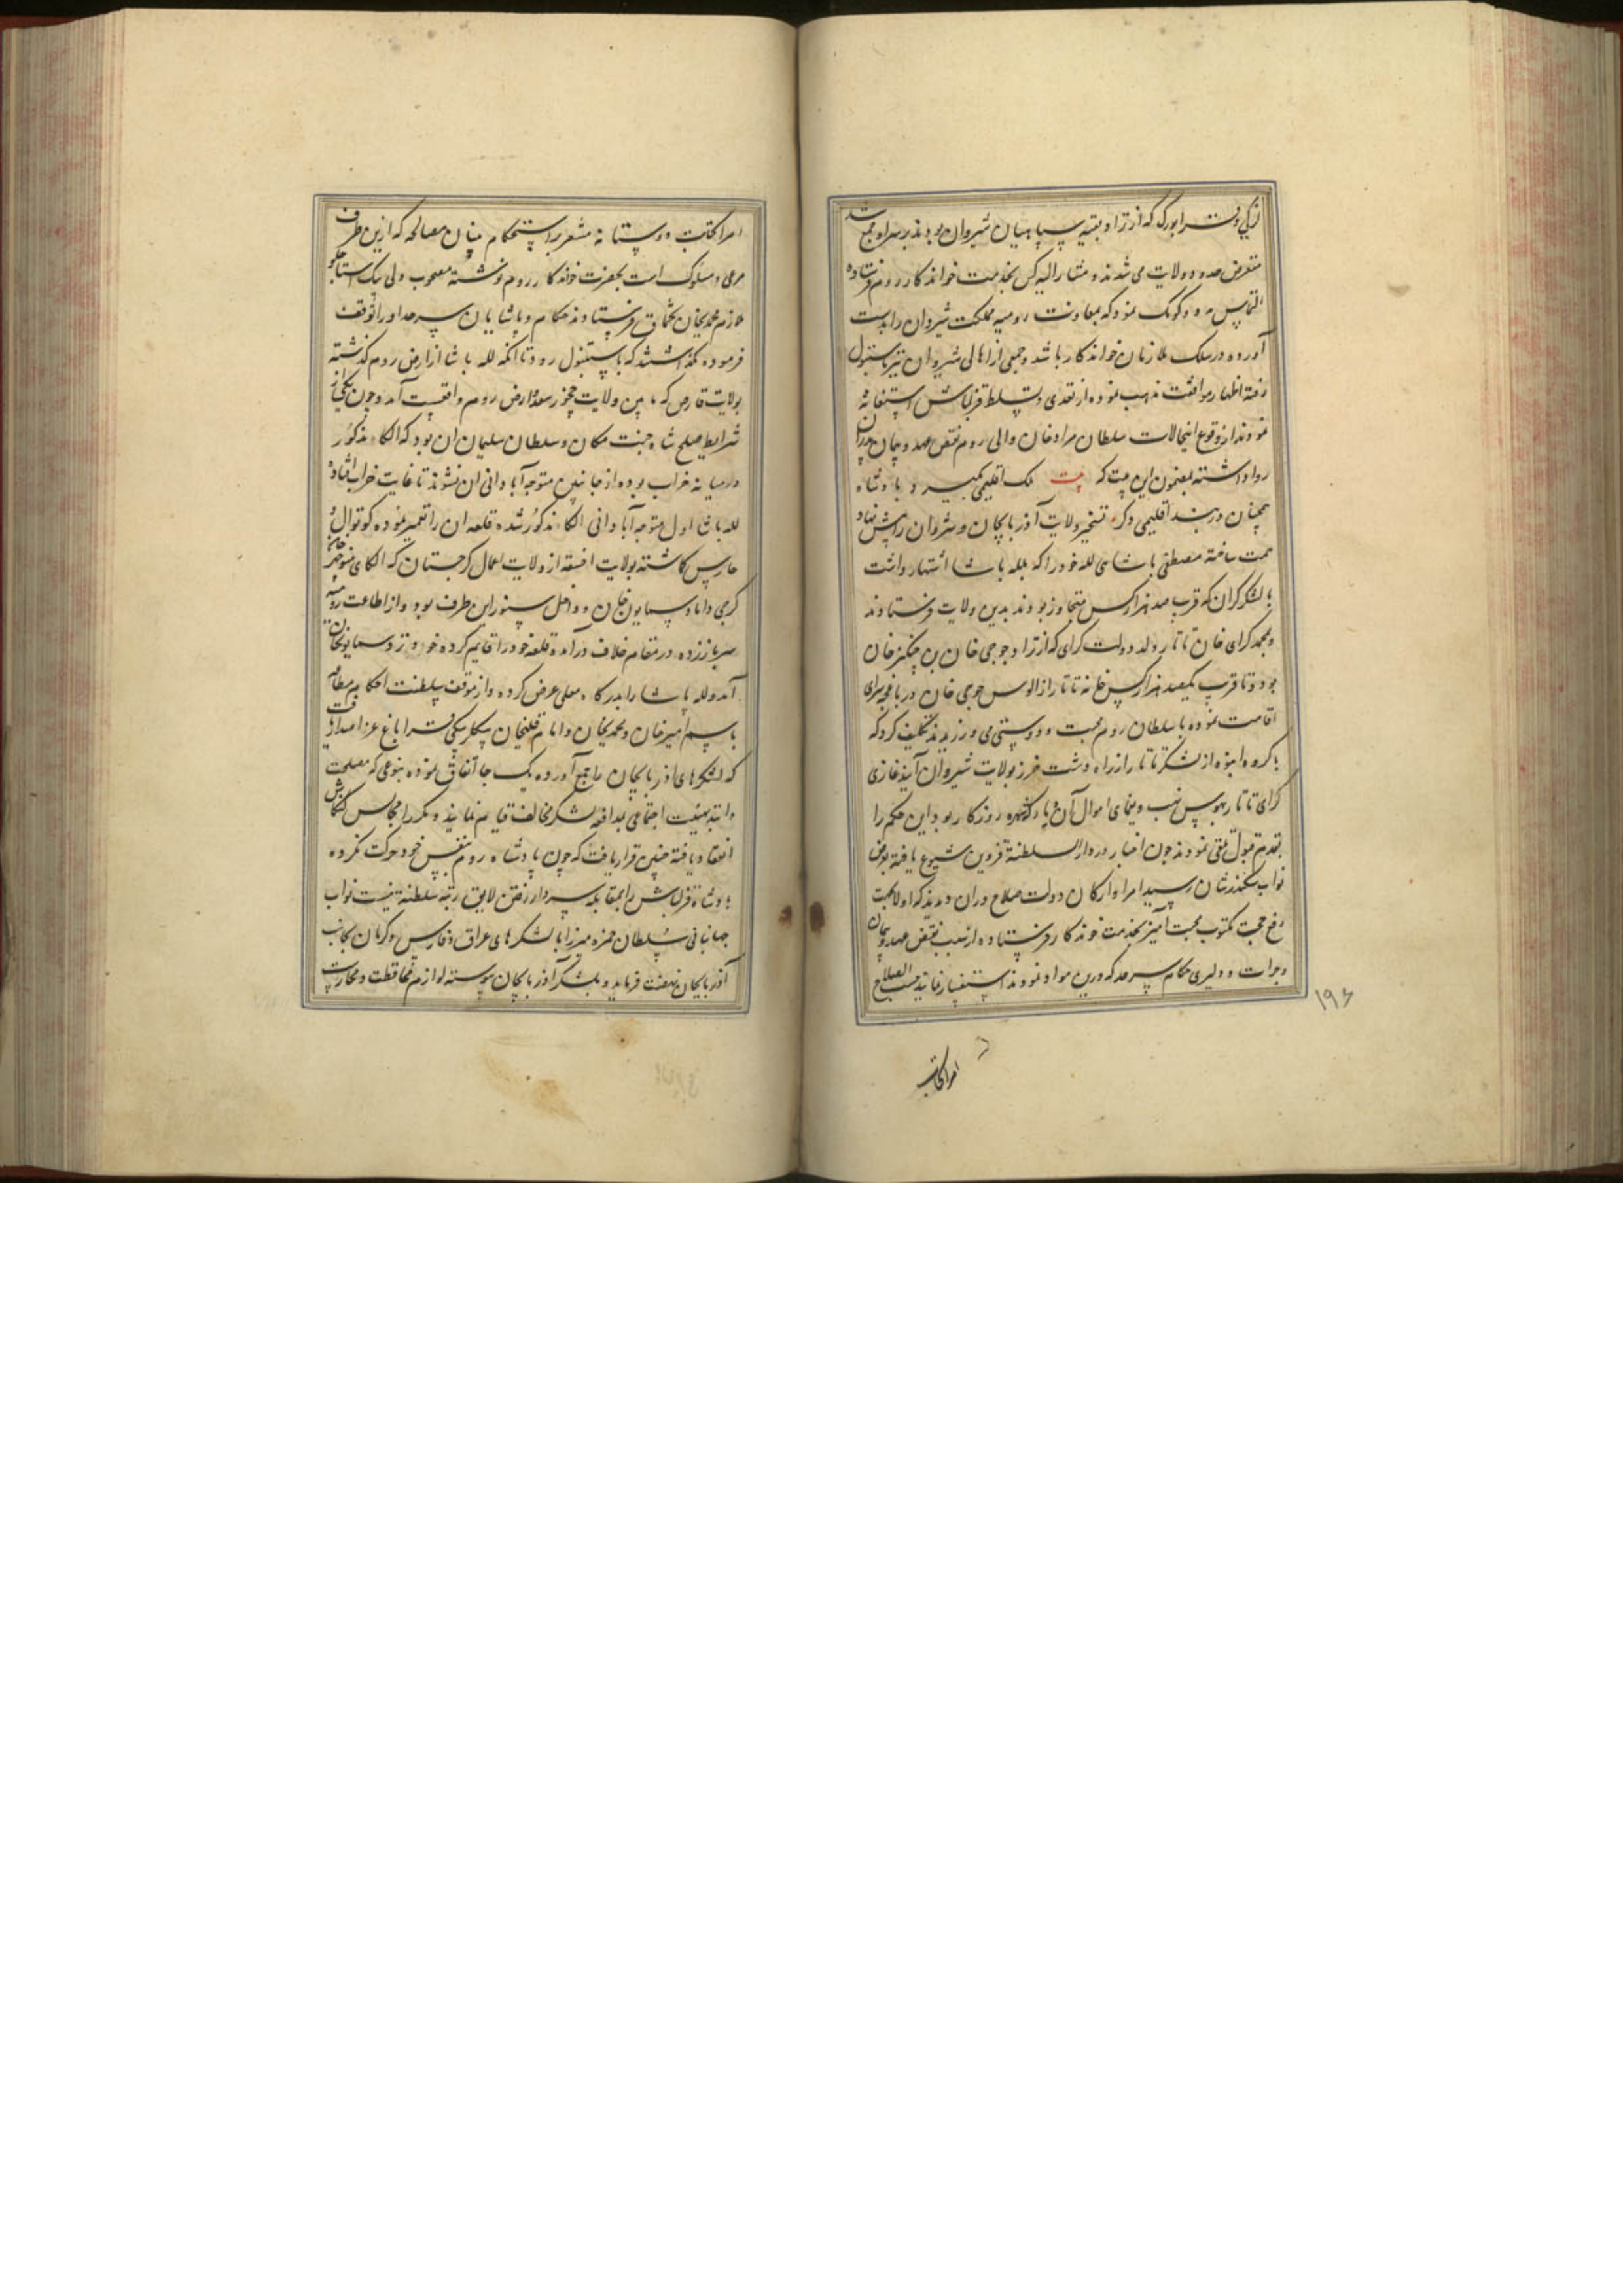 لزکی و قرابورک که از نژاد بقیه سپاهیان شیروان بودند بر سر او جمع شده
متعرض حدود ولایت می شدند و مشارالیه کس بخدمت خواندکار روم فرستاده
التماس مدد و کومک نمود که بمعاونت رومیه مملکت شیروان را بدست
آورده در سلک ملازمان خواندکار باشد و جمعی از اهالی شیروان نیز باستنبول
رفته اظهار موافقت مذهب نموده از تعدی و تسلط قزلباش استغاثه
نمودند از وقوع اینحالات سلطان مرادخان والی روم نقض عهد و پیمان پدران
روا داشته بمضمون این بیت که بیت ملک اقلیمی بگیرد پادشاه
همچنان در بند اقلیمی دگر تسخیر ولایت آذربایجان و شروان را پیش نهاد
همت ساخته مصطفی پاشای لله خود را که بلله پاشا اشتهار داشت
با لشکر گران که قرب صد هزار کس متجاوز بودند بدین ولایت فرستادند
و بمحمد گرای خان تاتار ولد دولت گرای که از نژاد جوجی خان بن چنگیز خان
بود و تا قرب یکصد هزار کس خانه تاتار از الوس جوجی خان در باغچه سرای
اقامت نموده با سلطان روم محبت و دوستی می ورزیدند تکلیف کرد که
با گروه انبوه از لشکر تاتار از راه دشت خزر بولایت شیروان آیند غازی
گرای تاتار بهوس نهب و یغمای اموال آن دیار که شهره روزگار بود این حکم را
بقدم قبول تلقی نمودند چون اخبار در دارالسلطنة قزوین شیوع یافته بعرض
نواب سکندر شان رسید امرا و ارکان دولت صلاح دران دیدند که اولا بجهت
رفع حجت مکتوب محبت آمیز بخدمت خوندکار فرستاده از سبب نقض عهد و پیمان
و جرات و دلیری حکام سرحد که درین مواد نمودند استفسار نمایند حسب الصلاح
۱۹۶
امرا کتابت
امرا کتابت دوستانه مشعر بر استحکام بنیان مصالحه که ازین طرف
مرعی و مسلوک است بحضرت خوندکار روم نوشته مصحوب ولی بیک استاجلو
ملازم محمدیخان تخماق فرستادند حکام و پاشایان سرحد او را توقف
فرموده نگذاشتند که باستنبول رود تا آنکه لله پاشا از ارض روم گذشته
بولایت قارص که مابین ولایت چخور سعد و ارض روم واقعست آمد و چون یکی از
شرایط صلح شاه جنت مکان و سلطان سلیمان ان بود که الکاء مذکور
درمیانه خراب بوده از جانبین متوجه آبادانی ان نشوند تا غایت خراب افتاده
لله پاشا اول متوجه آبادانی الکاء مذکور شده قلعه ان را تعمیر نموده کوتوال و
حارس گماشته بولایت اخسقه از ولایت اعمال گرجستان که الکای منوچهر خان
گرجی داماد سمایون خان و داخل سنور این طرف بود و از اطاعت رومیه
سر باز زده در مقام خلاف درآمده قلعه خود را قایم کرده خود نزد سمایون خان
آمد و لله پاشا را بدرگاه معلی عرض کرده و از موقف سلطنت احکام مطاعه
باسم امیرخان و محمدیخان و امام قلیخان بیگلربیگی قراباغ عز اصدار یافت
که لشکرهای اذربایجان را جمع آورده یک جا اتفاق نموده بنوعی که مصلحت
دانند بهیئت اجتماعی بمدافعه لشکر مخالف قیام نمایند و مکررا مجالس کنکاش
انعقاد یافته چنین قرار یافت که چون پادشاه روم بنفس خود حرکت نکرده
پادشاه قزلباش را بمقابله سردار رفتن لایق رتبه سلطنة نیست نواب
جهانبانی سلطان حمزه میرزا با لشکرهای عراق و فارس و کرمان بجانب
آذربایجان نهضت فرماید و بلشکر آذربایجان پیوسته لوازم محافظت و محاربت